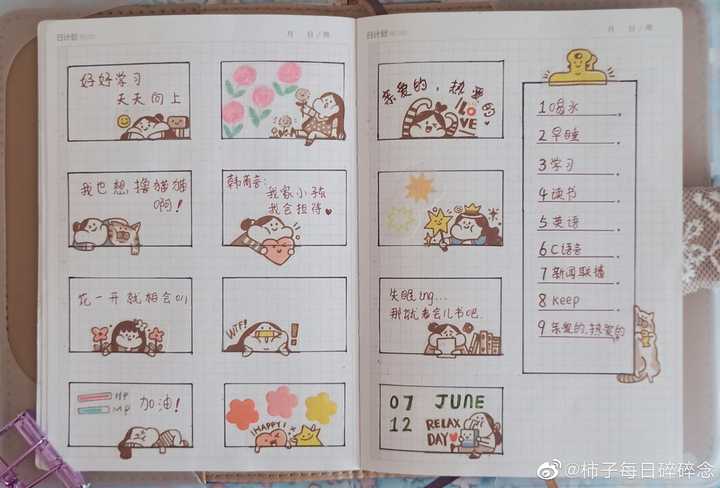 日计划
月 日/周
好好学习
天天向上
我也想撸猫猫
啊!
韩商言:
我家小孩
我会担待
花一开就相会
WTF!
HP
MP
加油!
HAPPY!
日计划
月 日/周
亲爱的,热爱的
LOVE
失眠ing...
那就看会儿书吧.
07 JUNE
12 RELAX
DAY
1 喝水
2 早睡
3 学习
4 读书
5 英语
6 C语言
7 新闻联播
8 keep
9 亲爱的,热爱的
@柿子每日碎碎念